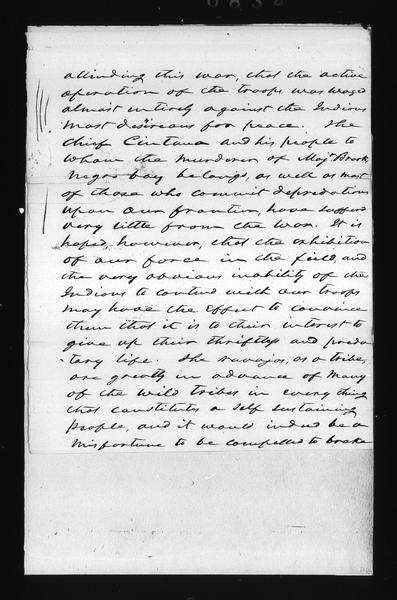 attending this war, that the active
operation of the troops was waged
almost entirely against the Indians
most desireous for peace. The
chief Cintana and his people to
whom the murderer of Maj Brooks
negro boy belongs, as well as most
of those who commit depredations
upon our frontier, have suffered
very little from the war. It is
hoped, however, that the exhibition
of our force in the field, and
the very obvious inability of the
Indians to contend with our troops
may have the effect to convince
them that it is to their interest to
give up their thriftless and preda-
-tory life. The navajos, as a tribe,
are greatly in advance of many
of the wild tribes in every thing
that constitutes a self sustaining
people, and it would indeed be a
misfortune to be compelled to brake